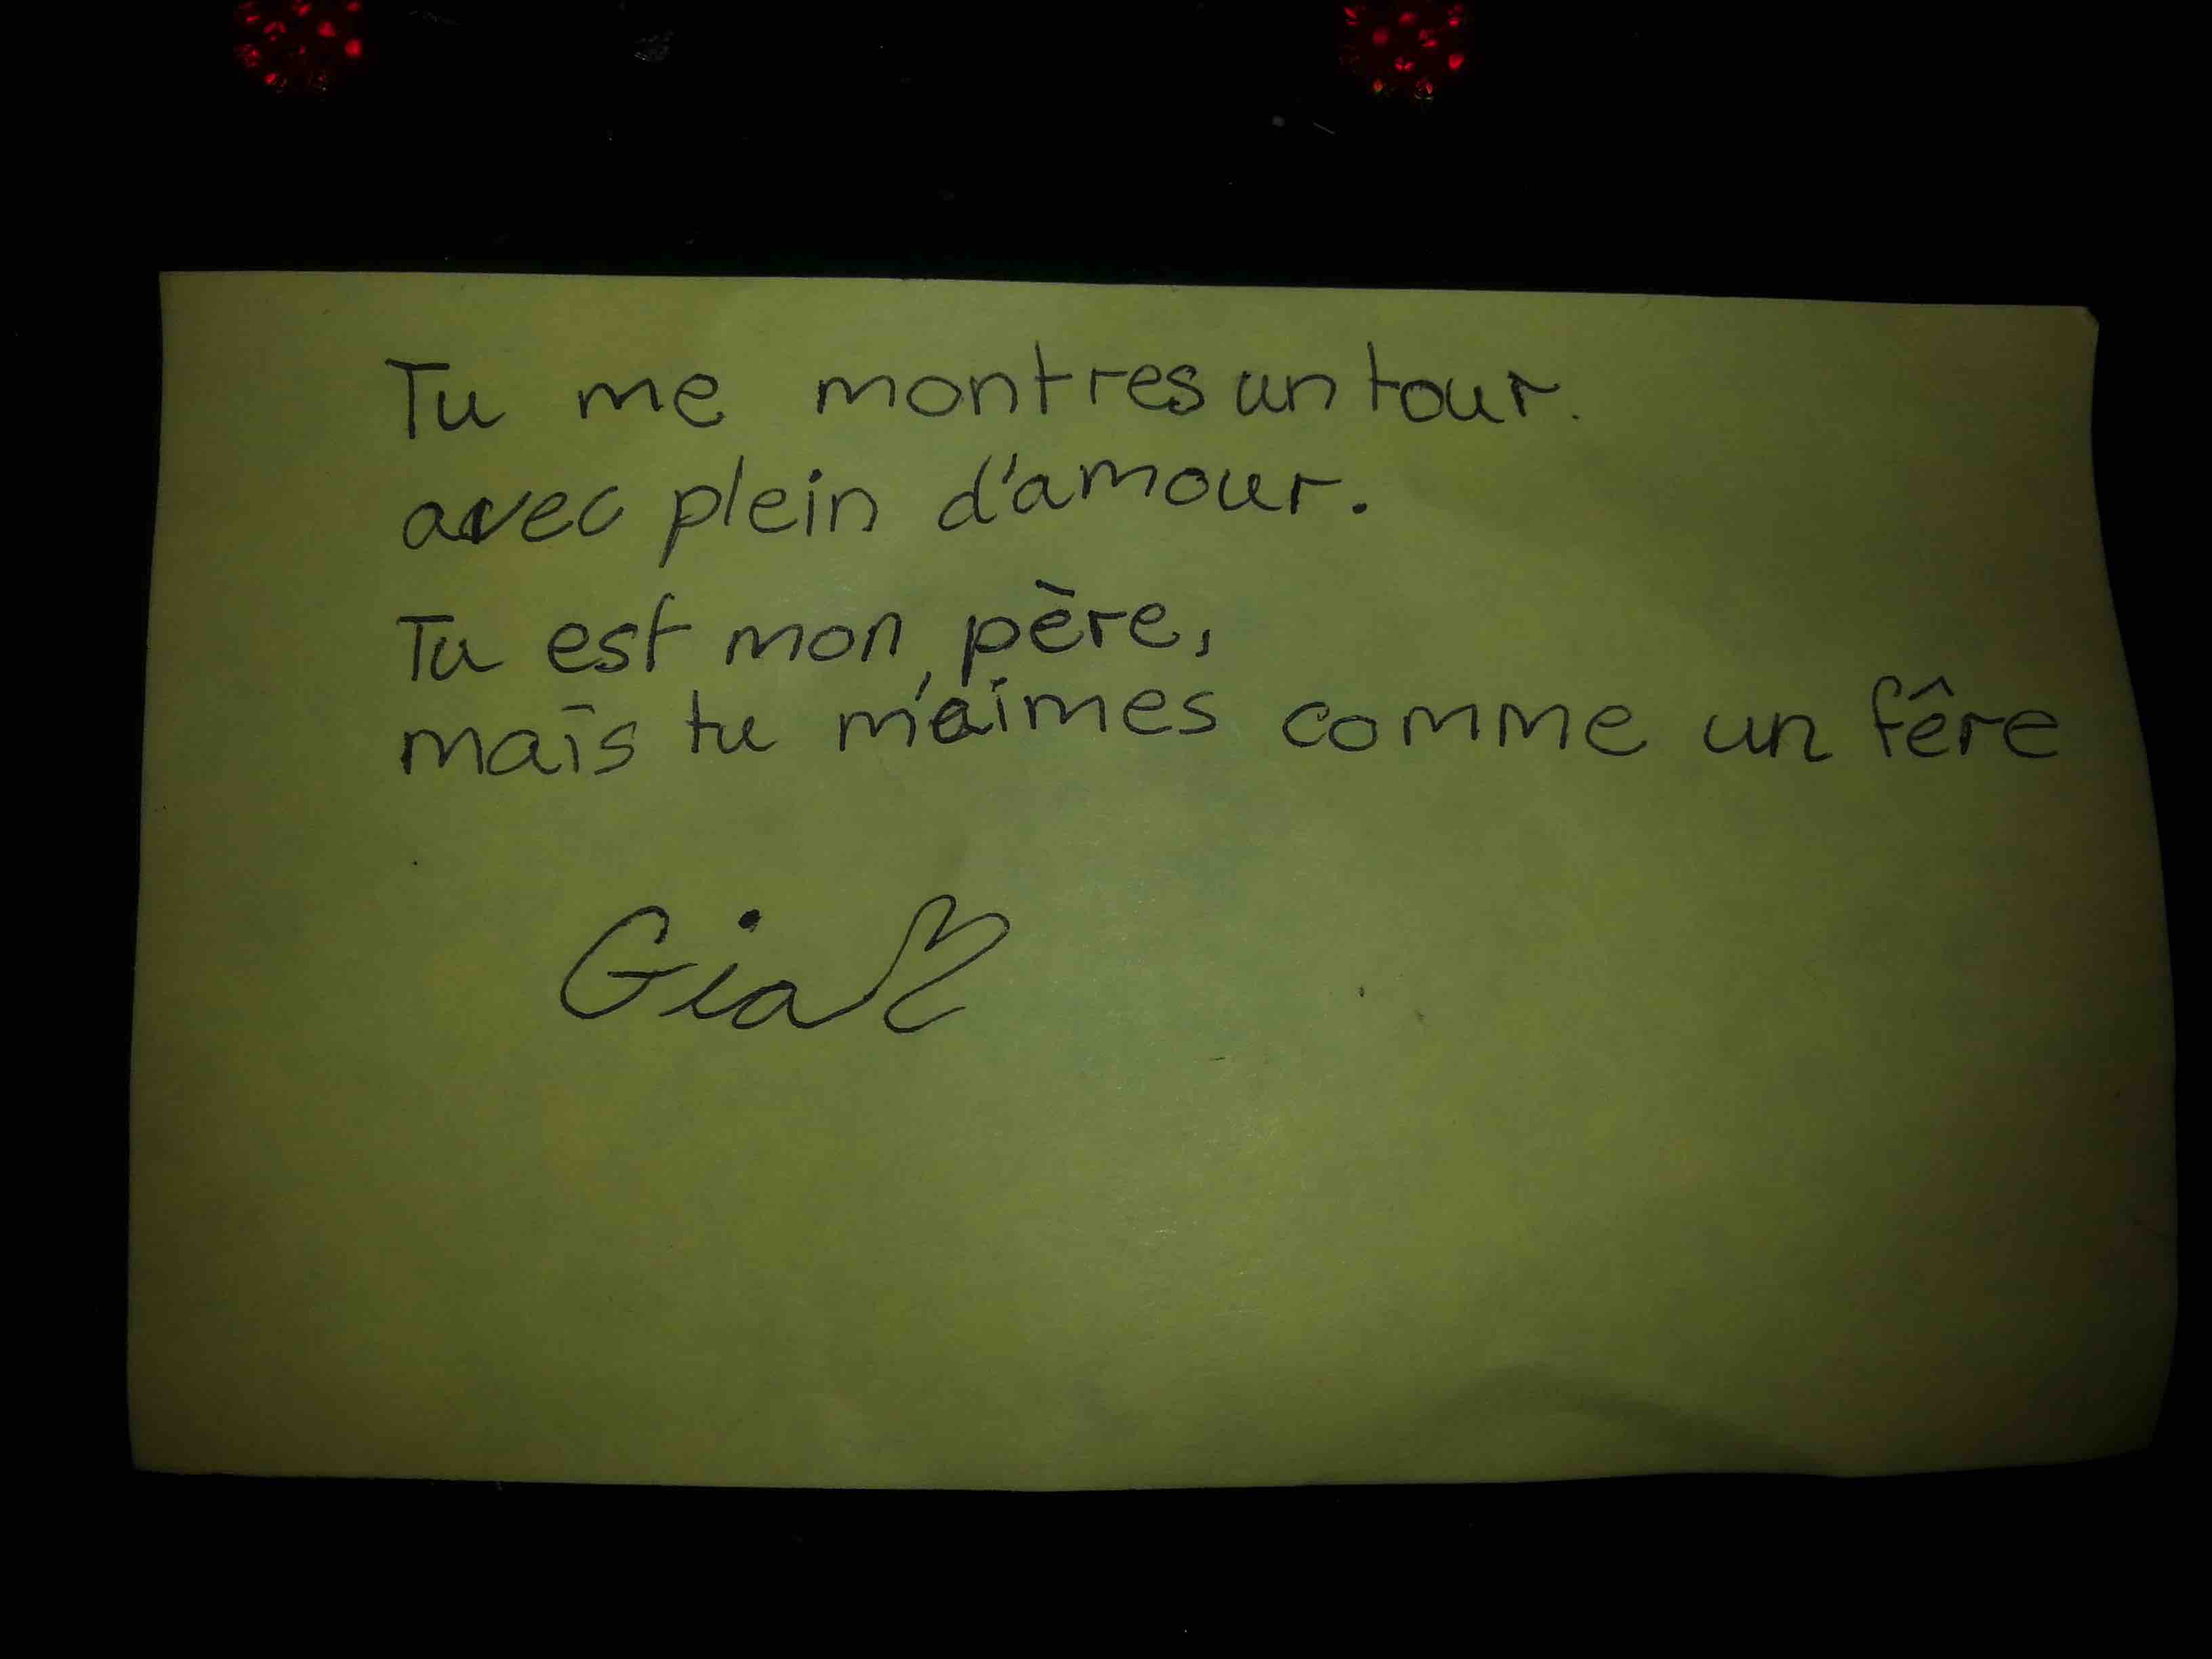 Tu me montres un tour.
avec plein d'amour.
Tu est mon père,
mais tu m'aimes comme un fêre
Gia